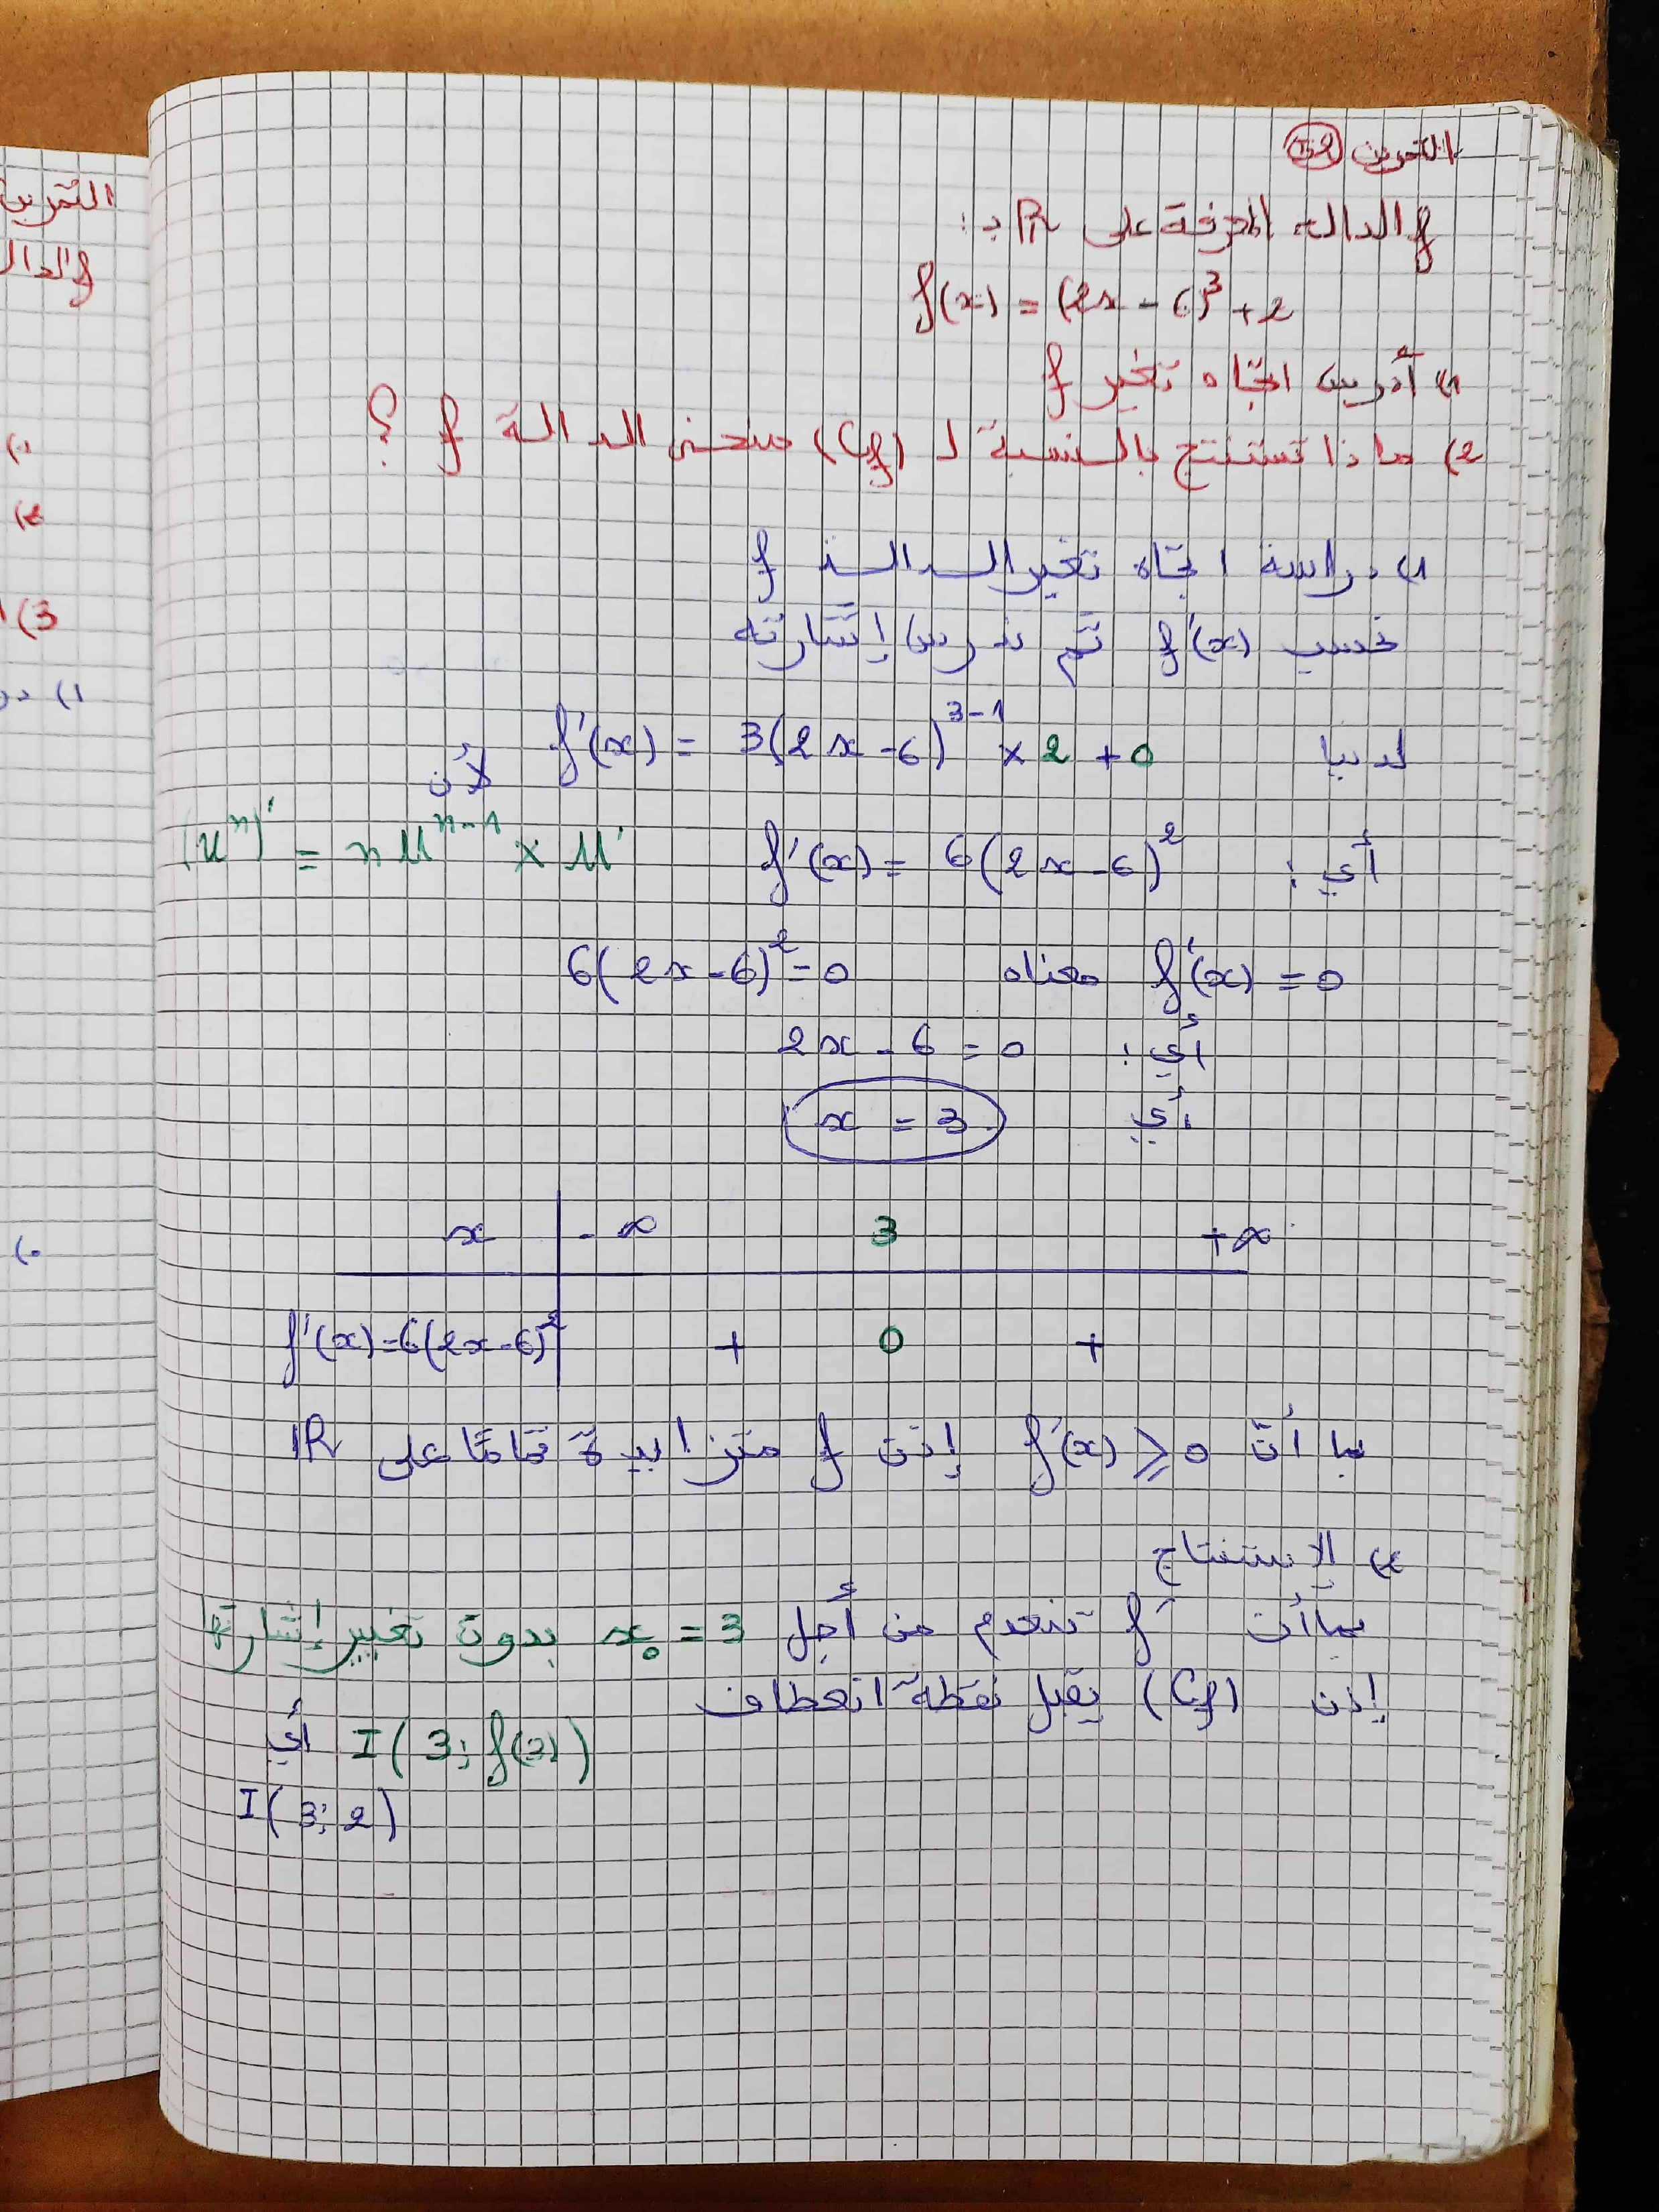 التمرين
f الدالة المعرفة على R بـ :
f(x) = (2x - 6)³ + 2
1) أدرس اتجاه تغير f
2) ماذا تستنتج بالنسبة لـ (Cf) منحنى الدالة f ؟
1) دراسة اتجاه تغير الدالة f
نحسب f'(x) ثم ندرس إشارته
لدينا f'(x) = 3(2x - 6)^(3-1) × 2 + 0 لأن
أي : f'(x) = 6(2x - 6)² (uⁿ)' = n uⁿ⁻¹ × u'
f'(x) = 0 معناه 6(2x - 6)² = 0
أي : 2x - 6 = 0
أي x = 3
x -∞ 3 +∞
f'(x) = 6(2x - 6)² + 0 +
بما أنّ f'(x) ≥ 0 إذن f متزايدة تمامًا على IR
2) الإستنتاج
بما أن f' تنعدم من أجل x₀ = 3 بدون تغيير إشارتها
إذن (Cf) يقبل نقطة انعطاف
I(3; f(3)) أي
I(3; 2)
التمرين
f الدال
(3
(1